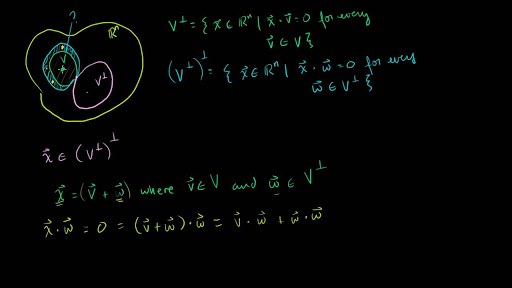 ?
ℝⁿ
V
V⊥
V⊥ = { x⃗ ∈ ℝⁿ | x⃗ · v⃗ = 0 for every
v⃗ ∈ V }
(V⊥)⊥ = { x⃗ ∈ ℝⁿ | x⃗ · w⃗ = 0 for every
w⃗ ∈ V⊥ }
x⃗ ∈ (V⊥)⊥
x⃗ = (v⃗ + w⃗) where v⃗ ∈ V and w⃗ ∈ V⊥
x⃗ · w⃗ = 0 = (v⃗ + w⃗) · w⃗ = v⃗ · w⃗ + w⃗ · w⃗